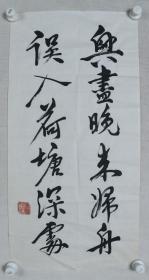 興盡晚来歸舟
误入荷塘深處